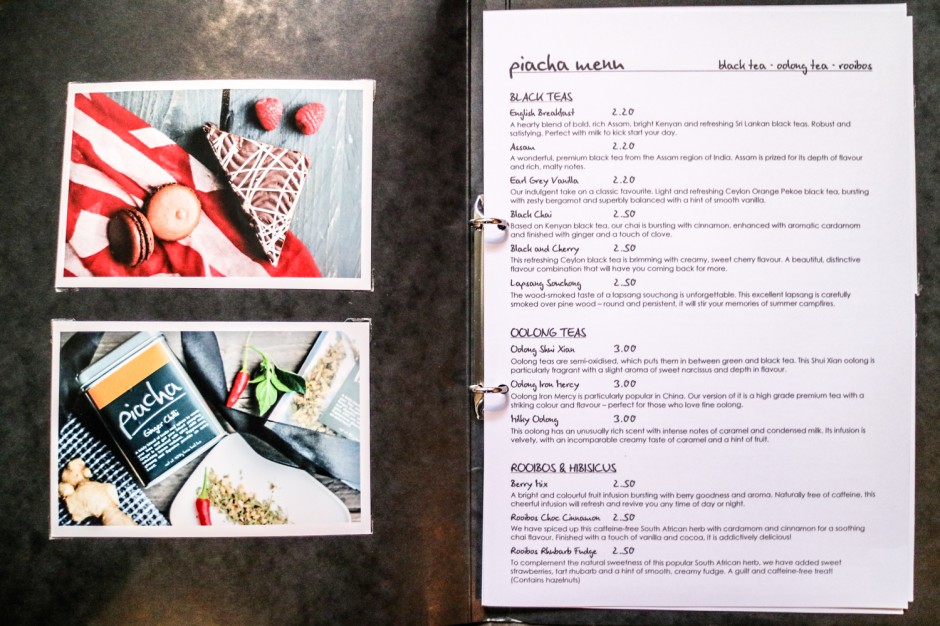 piacha
Ginger Chilli
piacha menu
black tea · oolong tea · rooibos
BLACK TEAS
English Breakfast 2.20
A hearty blend of bold, rich Assam, bright Kenyan and refreshing Sri Lankan black teas. Robust and
satisfying. Perfect with milk to kick start your day.
Assam 2.20
A wonderful, premium black tea from the Assam region of India. Assam is prized for its depth of flavour
and rich, malty notes.
Earl Grey Vanilla 2.20
Our indulgent take on a classic favourite. Light and refreshing Ceylon Orange Pekoe black tea, bursting
with zesty bergamot and superbly balanced with a hint of smooth vanilla.
Black Chai 2.50
Based on Kenyan black tea, our chai is bursting with cinnamon, enhanced with aromatic cardamom
and finished with ginger and a touch of clove.
Black and Cherry 2.50
This refreshing Ceylon black tea is brimming with creamy, sweet cherry flavour. A beautiful, distinctive
flavour combination that will have you coming back for more.
Lapsang Souchong 2.50
The wood-smoked taste of a lapsang souchong is unforgettable. This excellent lapsang is carefully
smoked over pine wood – round and persistent, it will stir your memories of summer campfires.
OOLONG TEAS
Oolong Shui Xian 3.00
Oolong teas are semi-oxidised, which puts them in between green and black tea. This Shui Xian oolong is
particularly fragrant with a slight aroma of sweet narcissus and depth in flavour.
Oolong Iron Mercy 3.00
Oolong Iron Mercy is particularly popular in China. Our version of it is a high grade premium tea with a
striking colour and flavour – perfect for those who love fine oolong.
Milky Oolong 3.00
This oolong has an unusually rich scent with intense notes of caramel and condensed milk. Its infusion is
velvety, with an incomparable creamy taste of caramel and a hint of fruit.
ROOIBOS & HIBISICUS
Berry Mix 2.50
A bright and colourful fruit infusion bursting with berry goodness and aroma. Naturally free of caffeine, this
cheerful infusion will refresh and revive you any time of day or night.
Rooibos Choc Cinnamon 2.50
We have spiced up this caffeine-free South African herb with cardamom and cinnamon for a soothing
chai flavour. Finished with a touch of vanilla and cocoa, it is addictively delicious!
Rooibos Rhubarb Fudge 2.50
To complement the natural sweetness of this popular South African herb, we have added sweet
strawberries, tart rhubarb and a hint of smooth, creamy fudge. A guilt and caffeine-free treat!
(Contains hazelnuts)